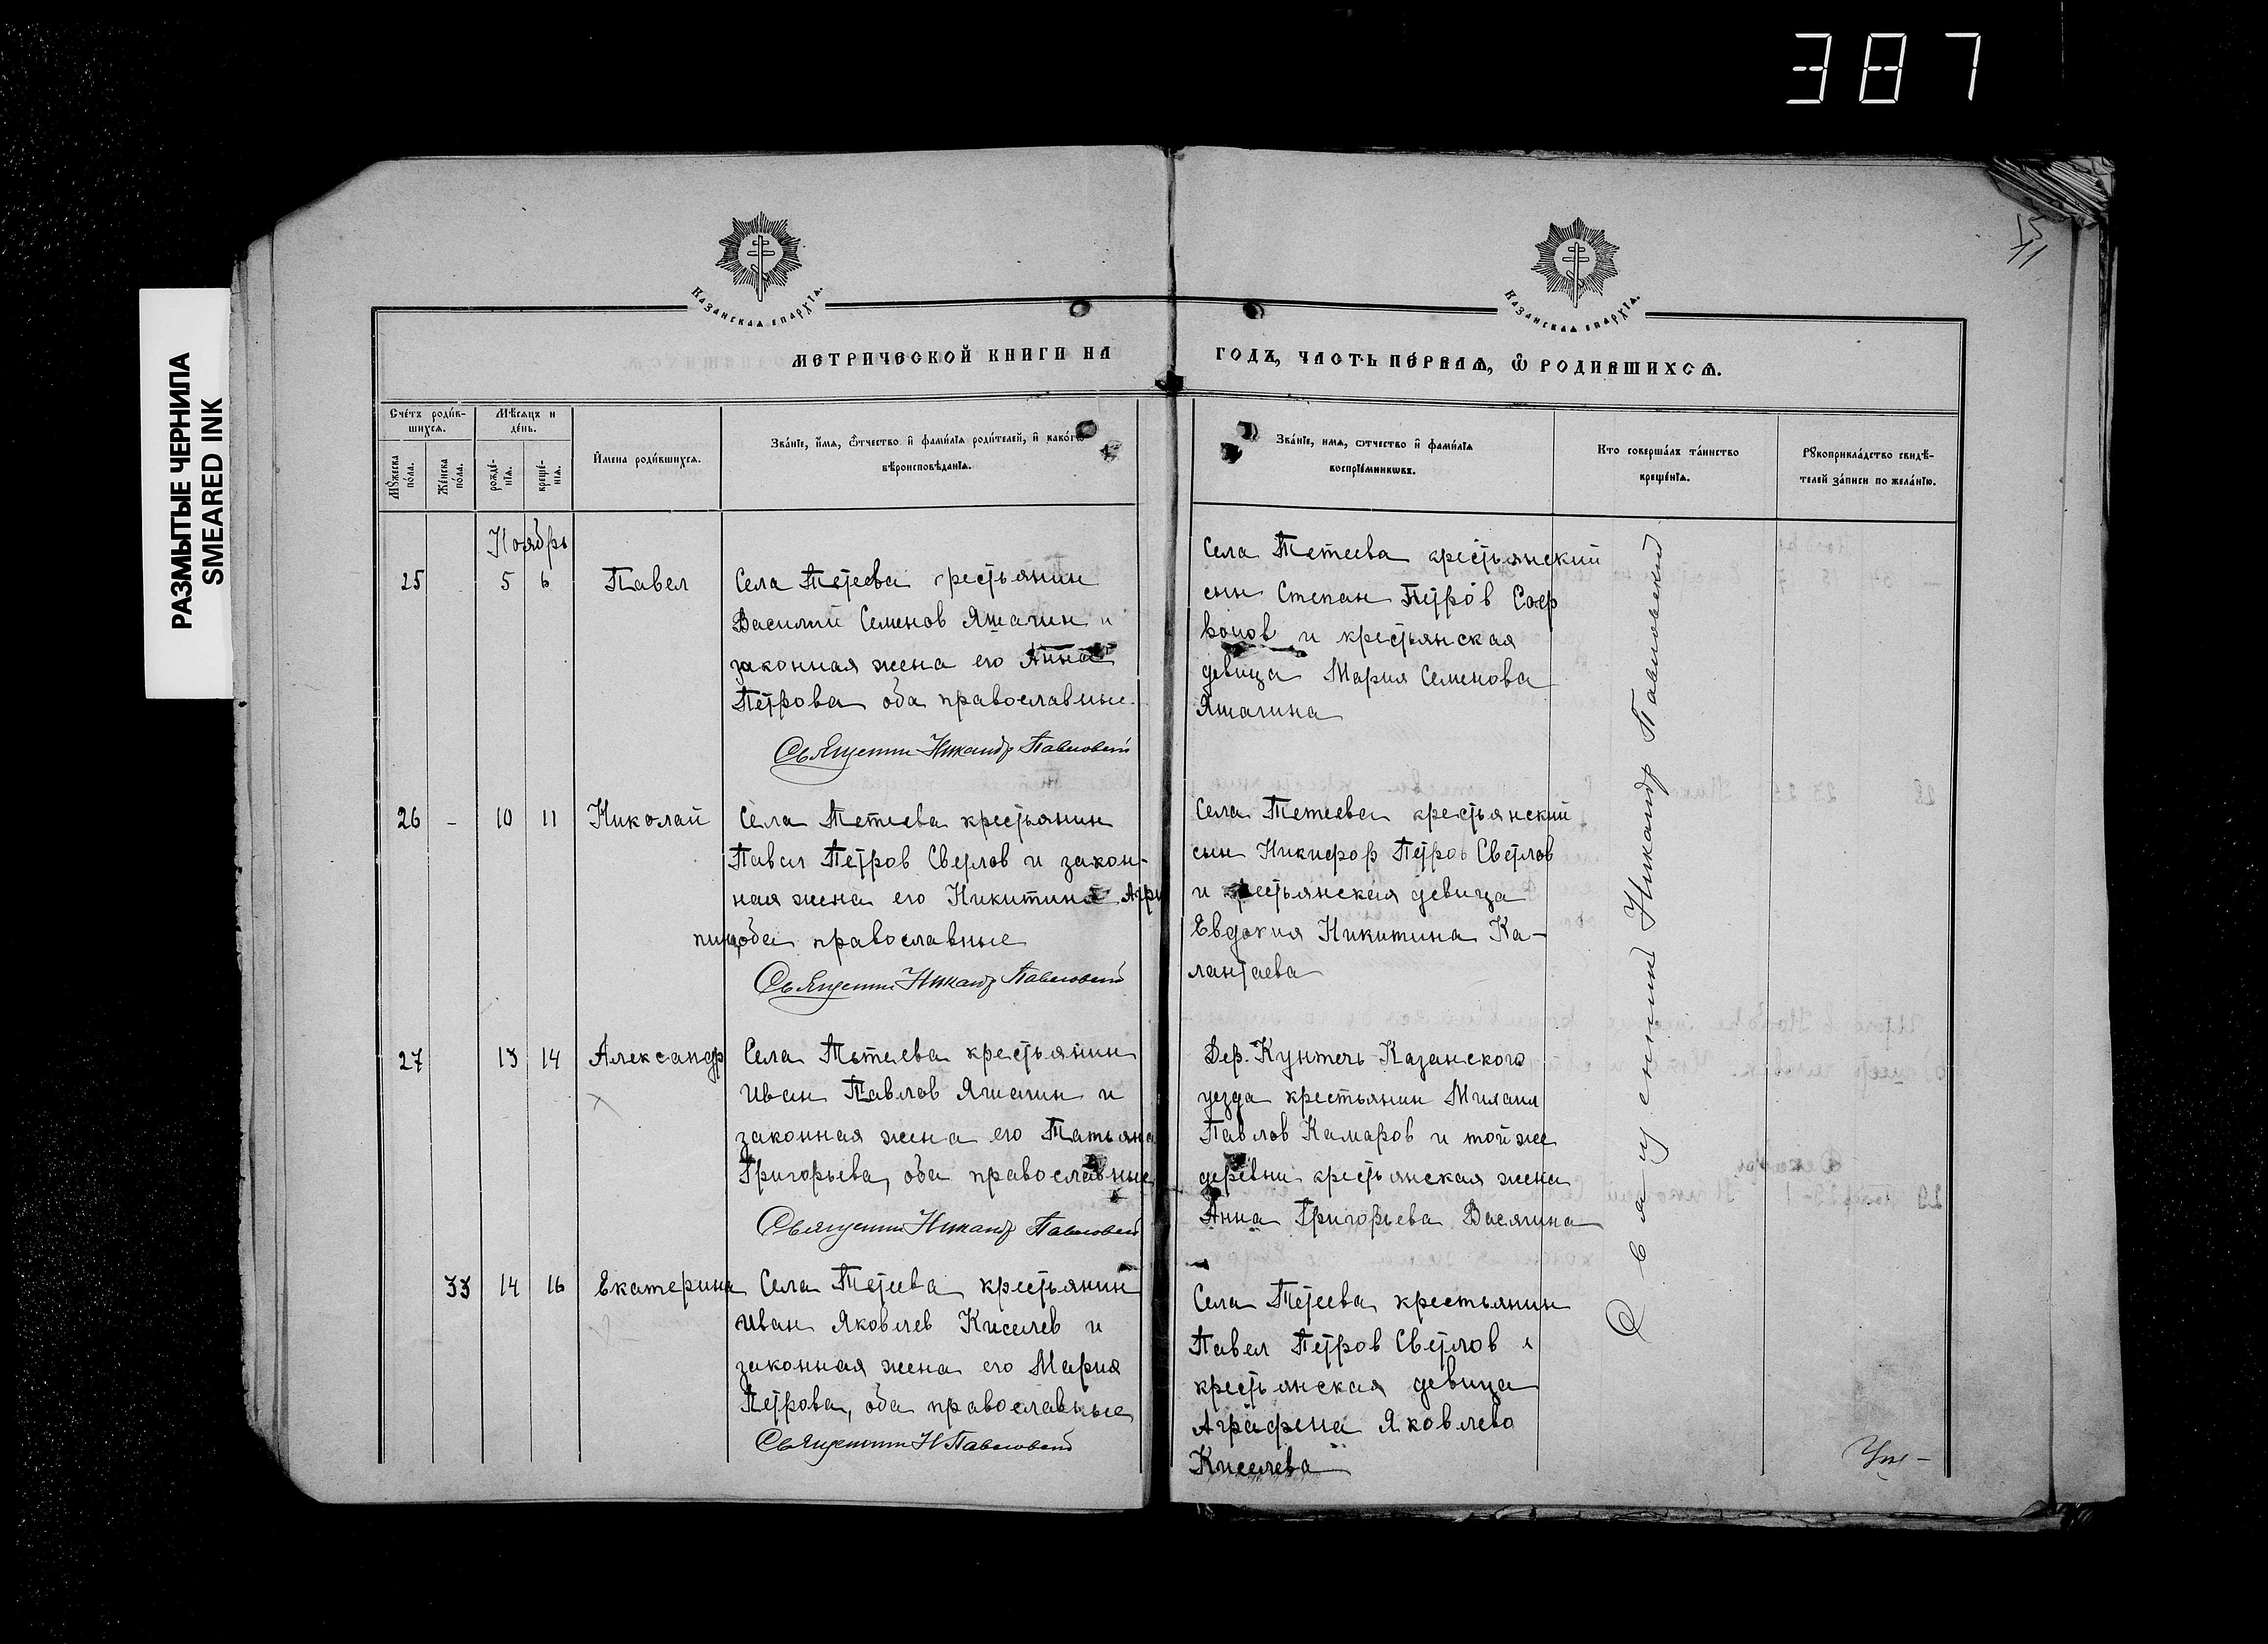 387
РАЗМЫТЫЕ ЧЕРНИЛА
SMEARED INK
Казанская епархїѧ.
Казанская епархїѧ.
МЕТРИЧЕСКОЙ КНИГИ НА
ГОДЪ, ЧАСТЬ ПЕ́РВАѦ, Ѿ РОДИВШИХСѦ.
Сче́тъ роди́в-
шихсѧ.
Мѣ́сѧцъ и
де́нь.
Мꙋ́жеска
по́ла.
Же́нска
по́ла.
рожде́-
нїѧ.
креще́-
нїѧ.
И҆мена роди́вшихсѧ.
Зва́нїе, и҆́мѧ, ѻ҆́тчество и҆ фами́лїѧ роди́телей, и҆ како́гѡ
вѣроисповѣ́данїѧ.
Зва́нїе, имѧ, ѻтчество и҆ фами́лїѧ
воспрїе́мникѡвъ.
Кто соверша́лъ та́инство
креще́нїѧ.
Рꙋкоприкла́дство свидѣ́-
телей за́писи по жела́нїю.
Ноябрь
25 5 6 Павел
Села Тетеева крестьянин
Василий Семенов Яшагин и
законная жена его Анна
Петрова оба православные.
Священник Никандр Павловский
Села Тетеева крестьянский
сын Степан Петров
и крестьянская
девица Мария Семенова
Яшагина
26 - 10 11 Николай
Села Тетеева крестьянин
Павел Петров Светлов и закон-
ная жена его Никитина Агри
пина оба православные
Священник Никандр Павловский
Села Тетеева крестьянский
сын Никифор Петров Светлов
и крестьянская девица
Евдокия Никитина Ка-
лантаева
27 13 14 Александр
Села Тетеева крестьянин
Иван Павлов Яшагин и
законная жена его Татьяна
Григорьева, оба православные
Священник Никандр Павловский
Дер. Кунтечь Казанского
уезда крестьянин Михаил
Павлов Камаров и той же
деревни крестьянская жена
Анна Григорьева Васягина
33 14 16 Екатерина
Села Тетеева крестьянин
Иван Яковлев Киселев и
законная жена его Мария
Петрова, оба православные
Священник Н Павловский
Села Тетеева крестьянин
Павел Петров Светлов и
крестьянская девица
Аграфена Яковлева
Киселева
Священник Никандр Павловский